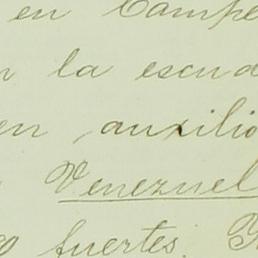 en Campe
la escud
en auxilio
Venezuel
fuertes.